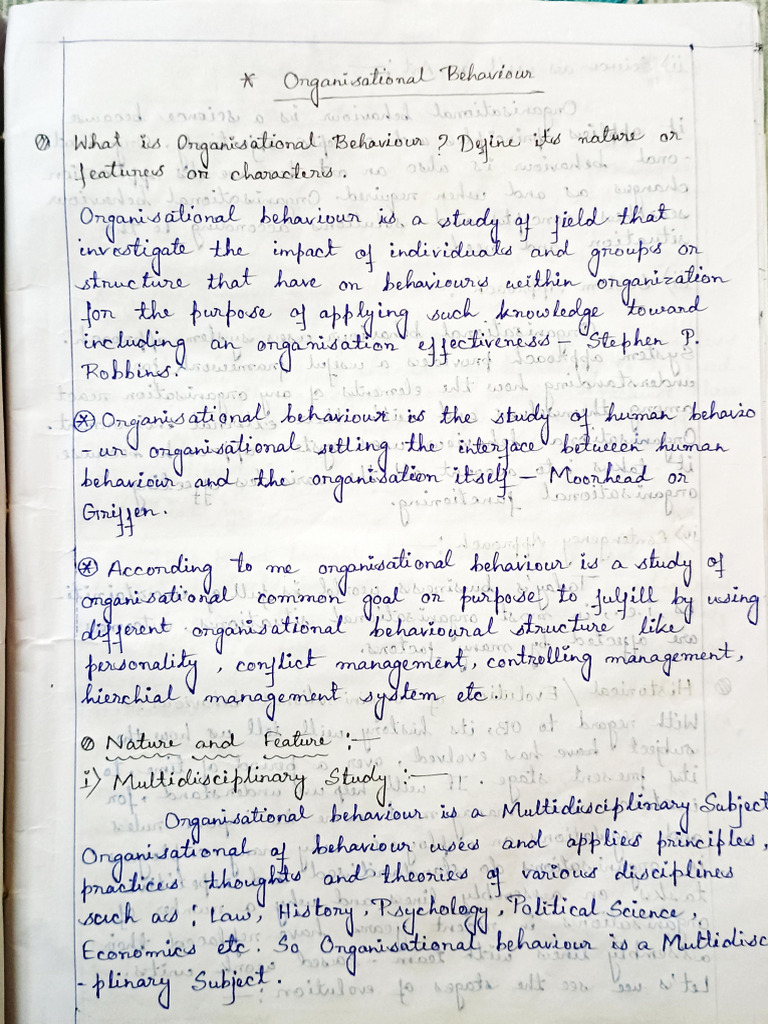 * Organisational Behaviour
What is Organisational Behaviour? Define its nature or
features or characters.
Organisational behaviour is a study of field that
investigate the impact of individuals and groups or
structure that have on behaviours within organization
for the purpose of applying such knowledge toward
including an organisation effectiveness - Stephen P.
Robbins.
* Organisational behaviour is the study of human behavio
-ur organisational setling the interface between human
behaviour and the organisation itself - Moorhead or
Griffen.
* According to me organisational behaviour is a study of
organisational common goal or purpose to fulfill by using
different organisational behavioural structure like
personality, conflict management, controlling management,
hierchial management system etc.
Nature and Feature :-
i) Multidisciplinary Study :-
Organisational behaviour is a Multidisciplinary Subject
Organisational of behaviour uses and applies principles,
practices thoughts and theories of various disciplines
such as : Law, History, Psychology, Political Science,
Economics etc. So Organisational behaviour is a Multidisc
-plinary Subject.